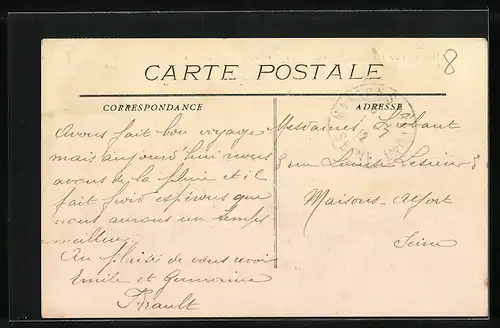 8
CARTE POSTALE
CORRESPONDANCE
ADRESSE
Avons fait bon voyage
mais aujourd'hui nous
avons de la pluie et il
fait froid espérons que
nous aurons un temps
meilleur
Au plaisir de vous revoir
Emile et Germaine
Mesdames
8 rue Louise
Maisons-Alfort
Seine